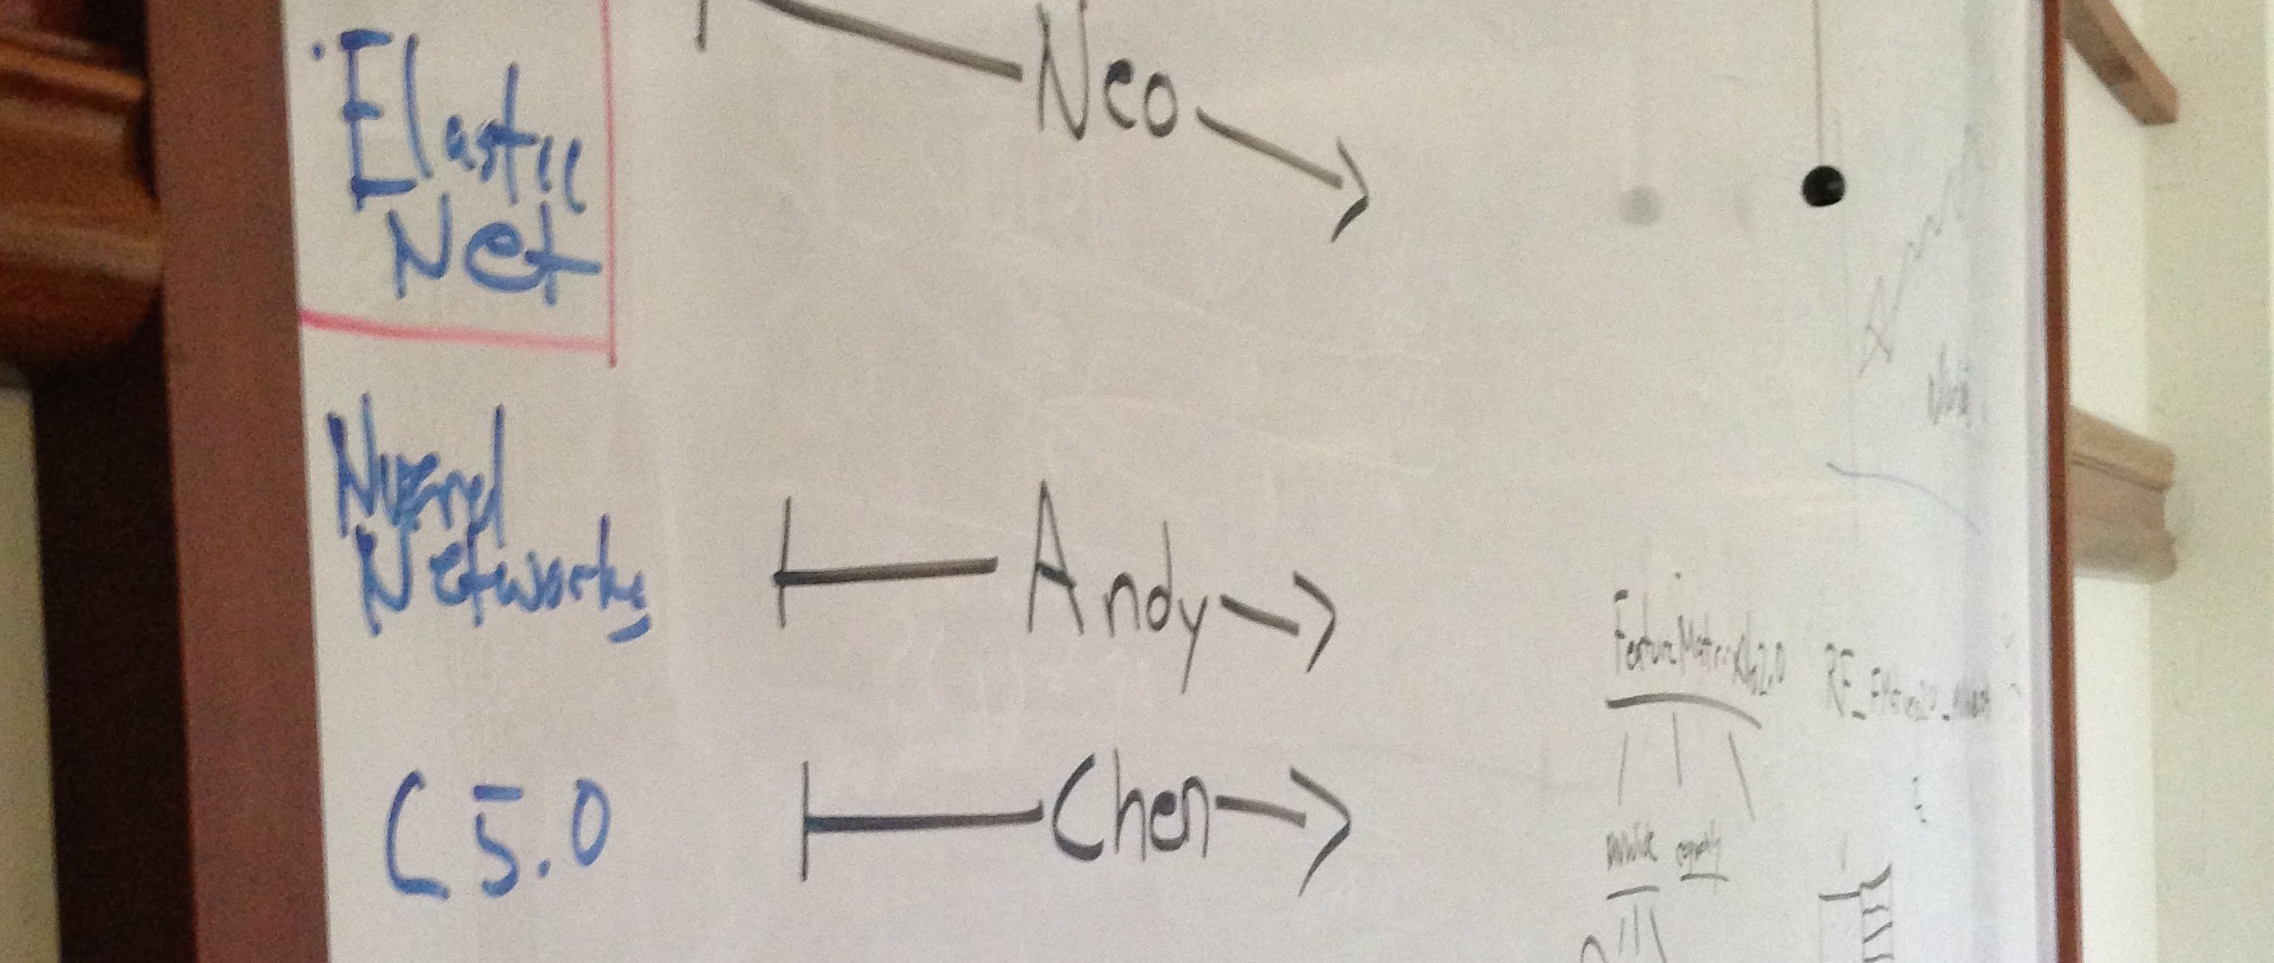 Elastic
Net
Neo
Nueral
Networks
Andy
C5.0
Chen
FeatureMatrixV2.0